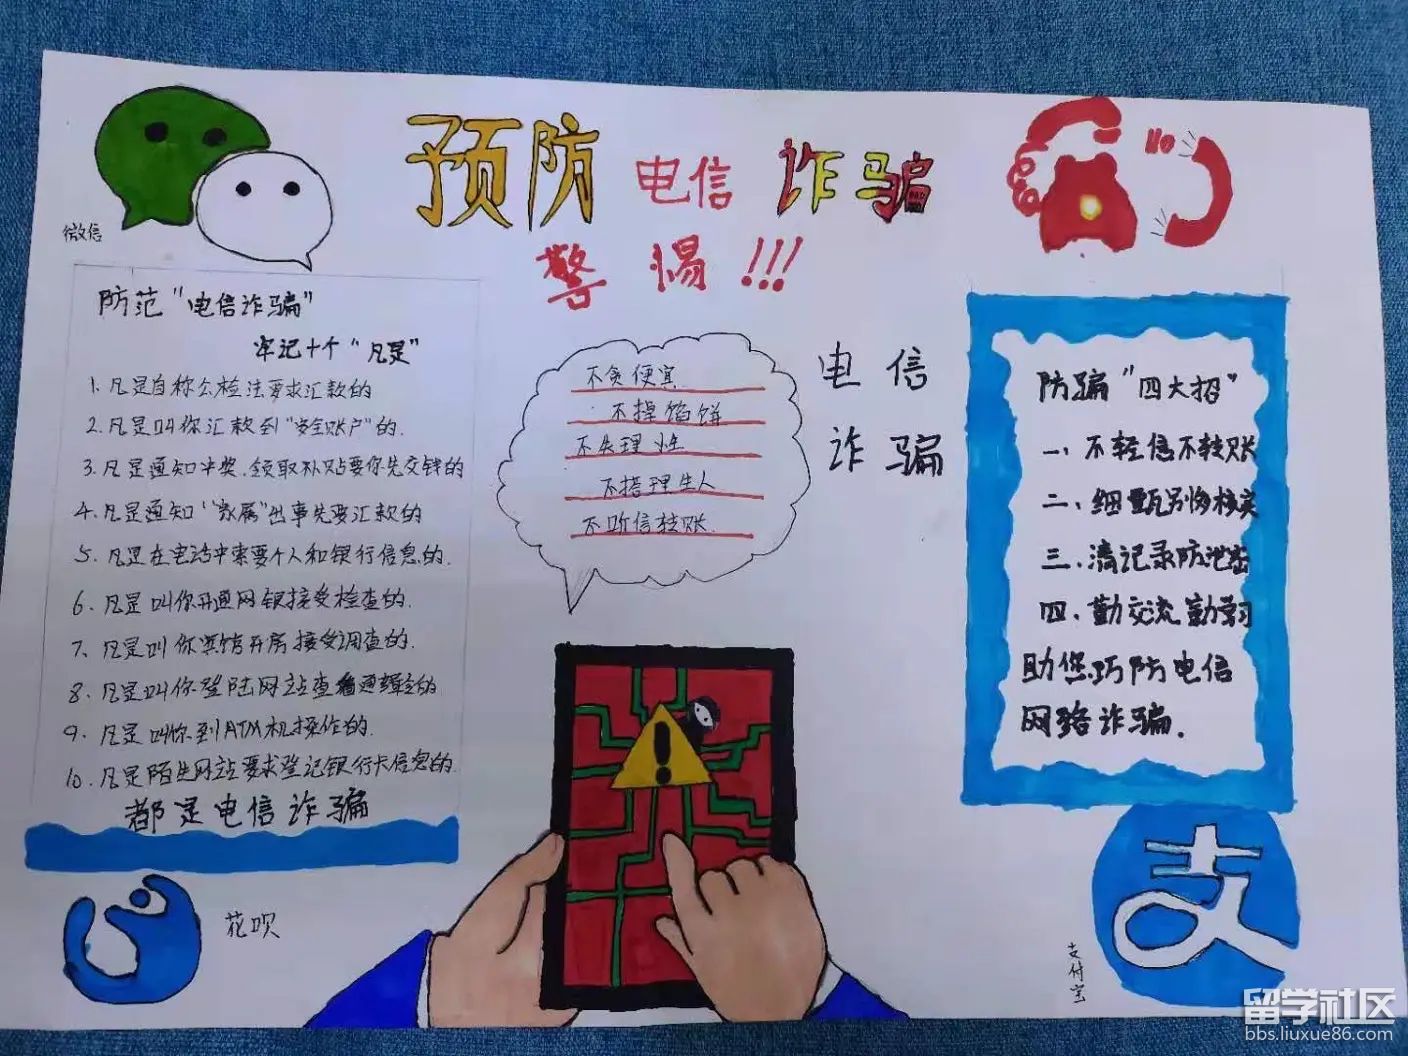 预防电信诈骗
警惕!!!
微信
防范"电信诈骗"
牢记十个"凡是"
1. 凡是自称公检法要求汇款的
2. 凡是叫你汇款到"安全账户"的.
3. 凡是通知中奖、领取补贴要你先交钱的
4. 凡是通知"家属"出事先要汇款的
5. 凡是在电话中索要个人和银行信息的.
6. 凡是叫你开通网银接受检查的.
7、凡是叫你宾馆开房接受调查的.
8. 凡是叫你登陆网站查看通缉令的
9. 凡是叫你到ATM机操作的.
10. 凡是陌生网站要求登记银行卡信息的.
都是电信诈骗
花呗
不贪便宜
不掉馅饼
不失理性
不搭理生人
不听信转账.
电信
诈骗
防骗"四大招"
一、不轻信不转账
二、细甄别多核实
三、清记录防泄密
四、勤交流勤学习
助您巧防电信
网络诈骗.
支付宝
支
留学社区
bbs.liuxue86.com